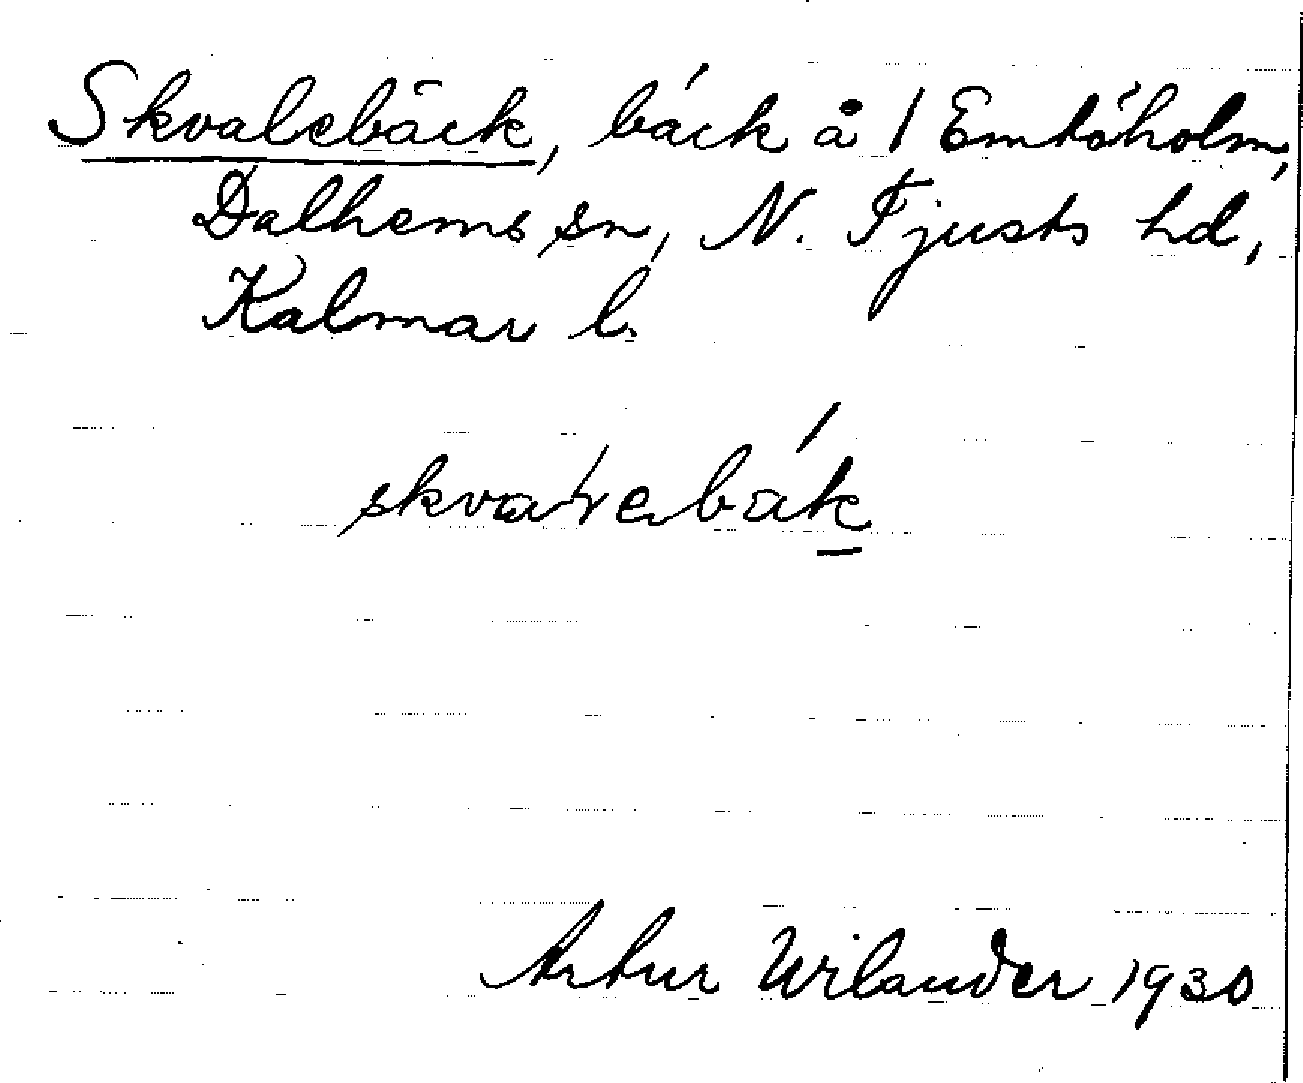 Skvalebäck, bäck å / Emtöholm,
Dalhems sn, N. Tjusts hd,
Kalmar l.
Artur Wilander 1930